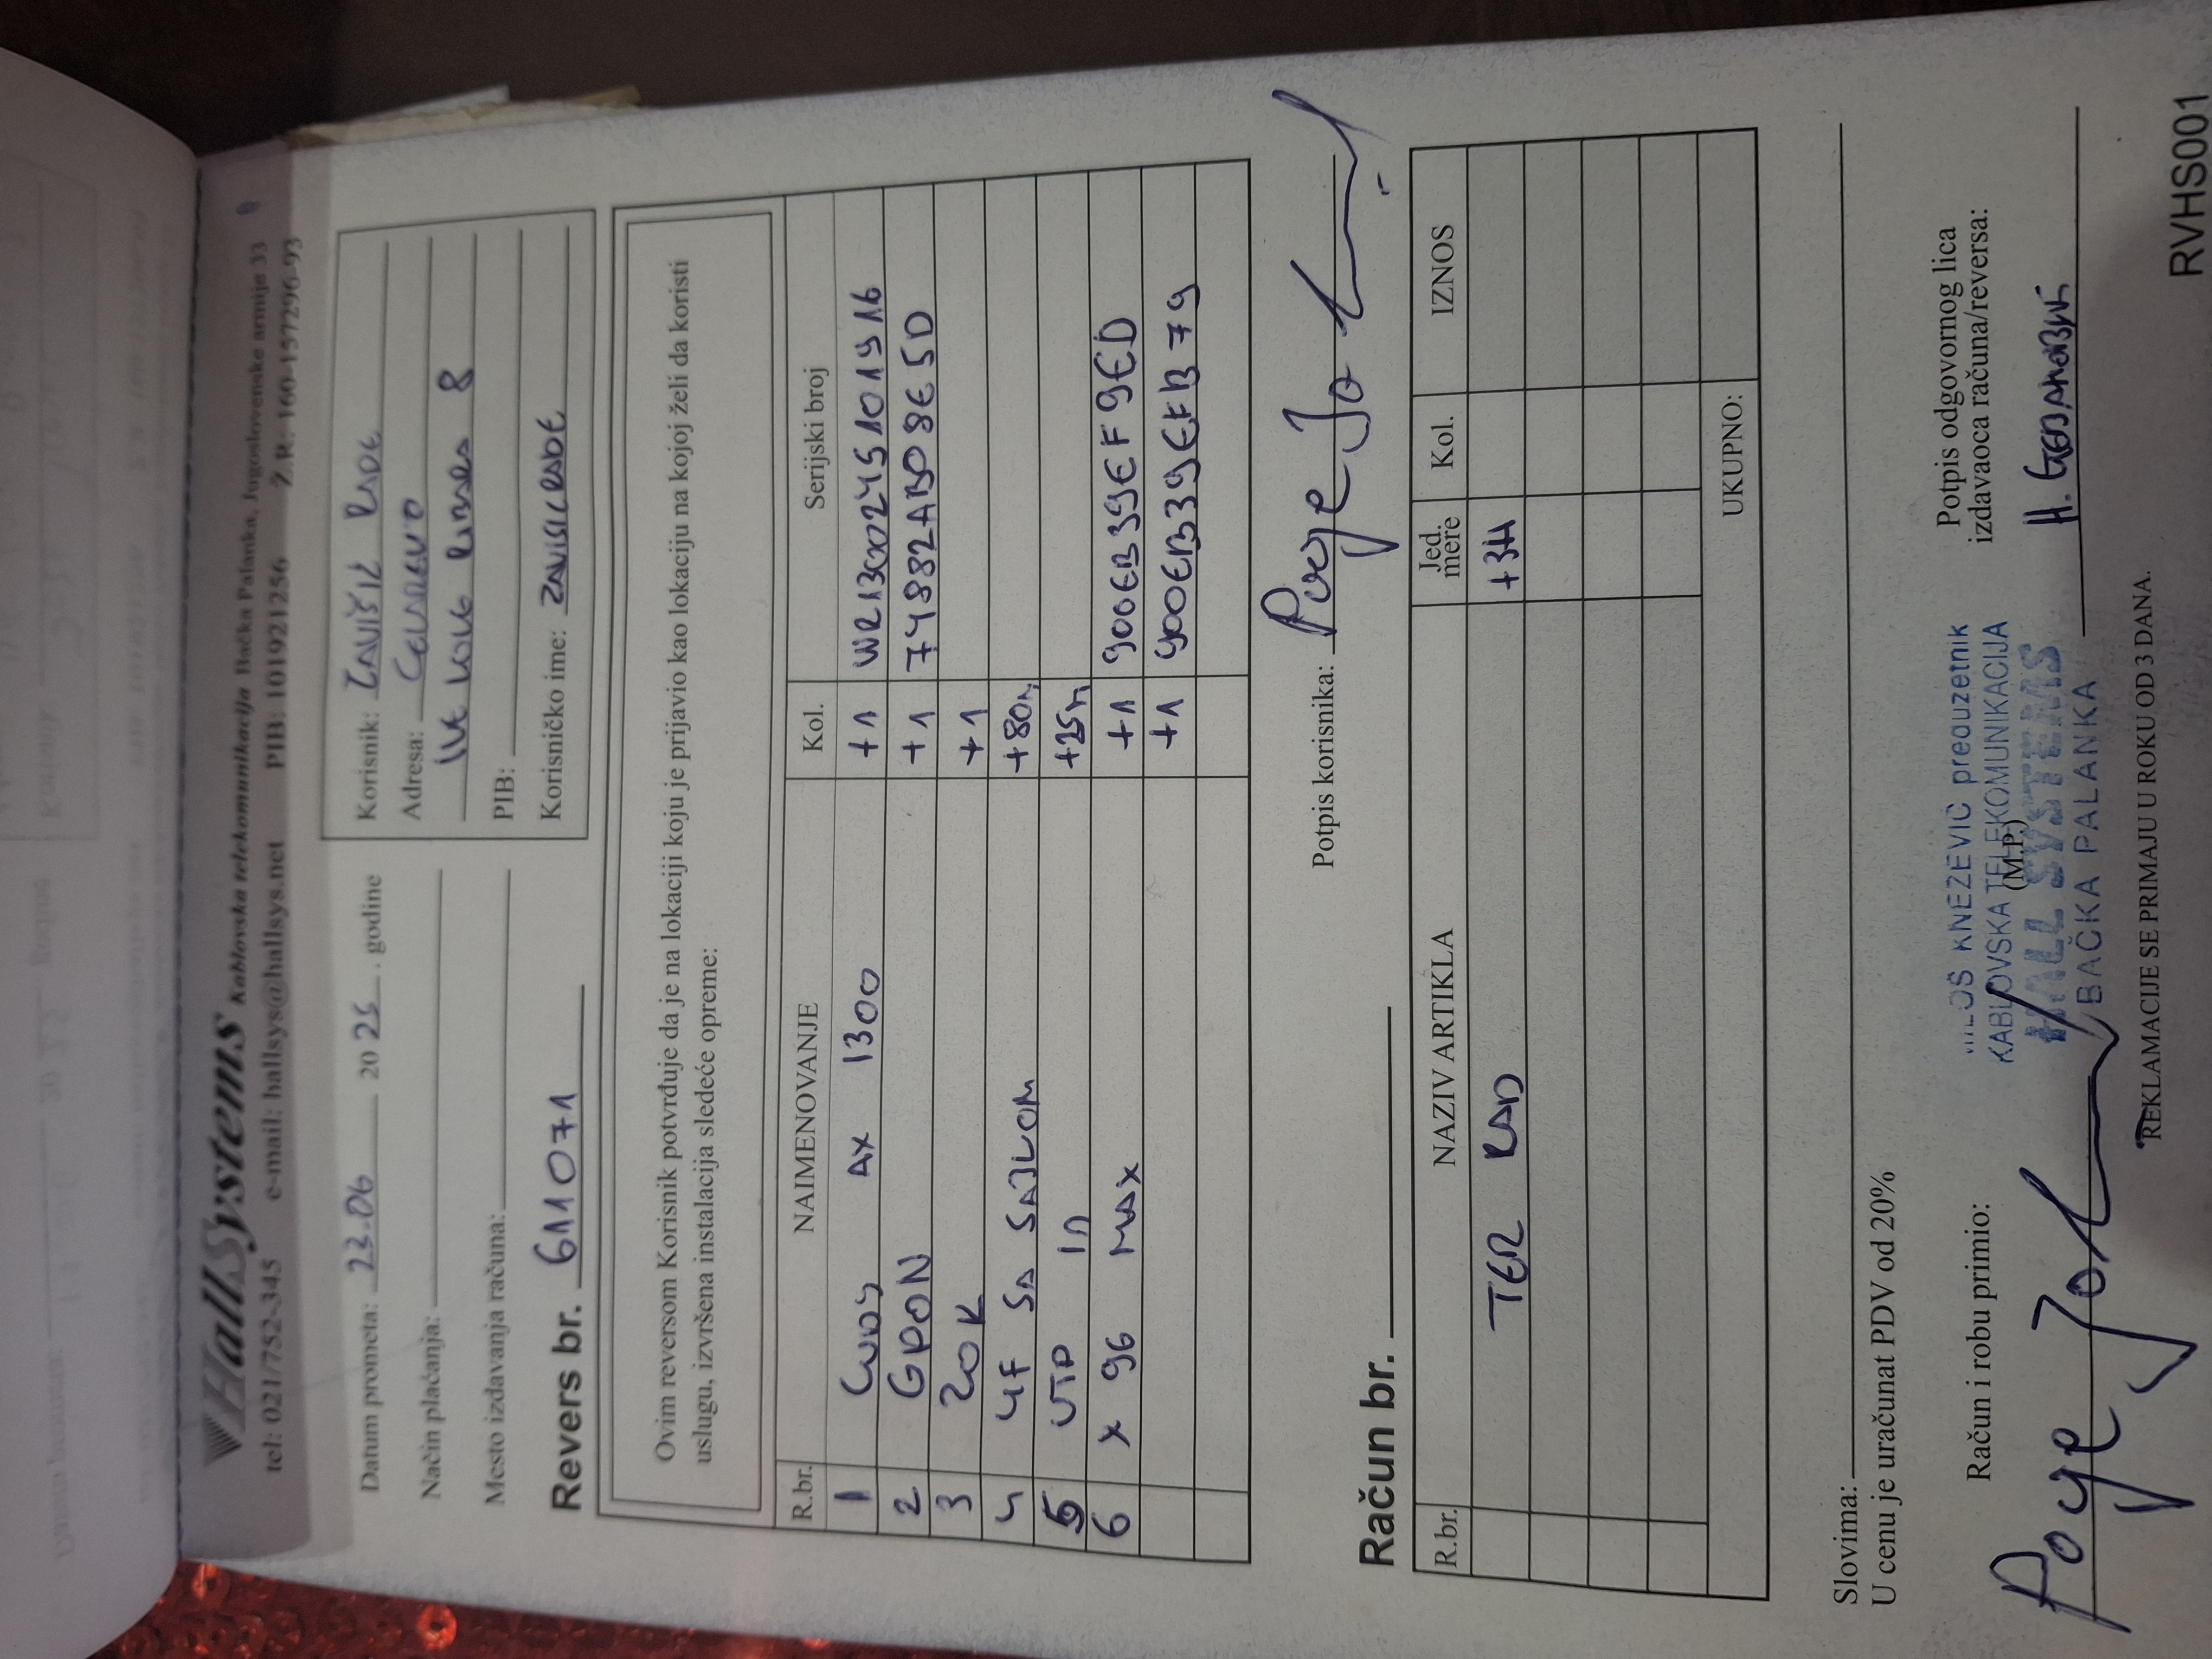 HallSystems Kablovska telekomunikacija Bačka Palanka, Jugoslovenske armije 33
tel: 021/752-345 e-mail: hallsys@hallsys.net PIB: 101921256 Ž.R.: 160-157296-93
Datum prometa: 23.06 2025. godine
Način plaćanja:
Mesto izdavanja računa:
Revers br. 611071
Korisnik: RADE
Adresa:
8
PIB:
Korisničko ime: ZAVISICRADE
Ovim reversom Korisnik potvrđuje da je na lokaciji koju je prijavio kao lokaciju na kojoj želi da koristi
uslugu, izvršena instalacija sledeće opreme:
R.br. NAIMENOVANJE Kol. Serijski broj
1 CUDY AX 1300 +1 WR13000245101916
2 GPON +1 74882AB08E5D
3 ZOK +1
4 4F SA SAJLOM +80m
5 UTP IN +25m
6 X 96 MAX +1 9006EB39EF9ED
+1 900EB39EFB79
Potpis korisnika:
Račun br.
R.br. NAZIV ARTIKLA Jed. mere Kol. IZNOS
TER RAD +3H
UKUPNO:
Slovima:
U cenu je uračunat PDV od 20%
Račun i robu primio:
MILOŠ KNEŽEVIĆ preduzetnik
KABLOVSKA TELEKOMUNIKACIJA
(M.P.)
HALL SYSTEMS
BAČKA PALANKA
Potpis odgovornog lica
izdavaoca računa/reversa:
REKLAMACIJE SE PRIMAJU U ROKU OD 3 DANA.
RVHS001